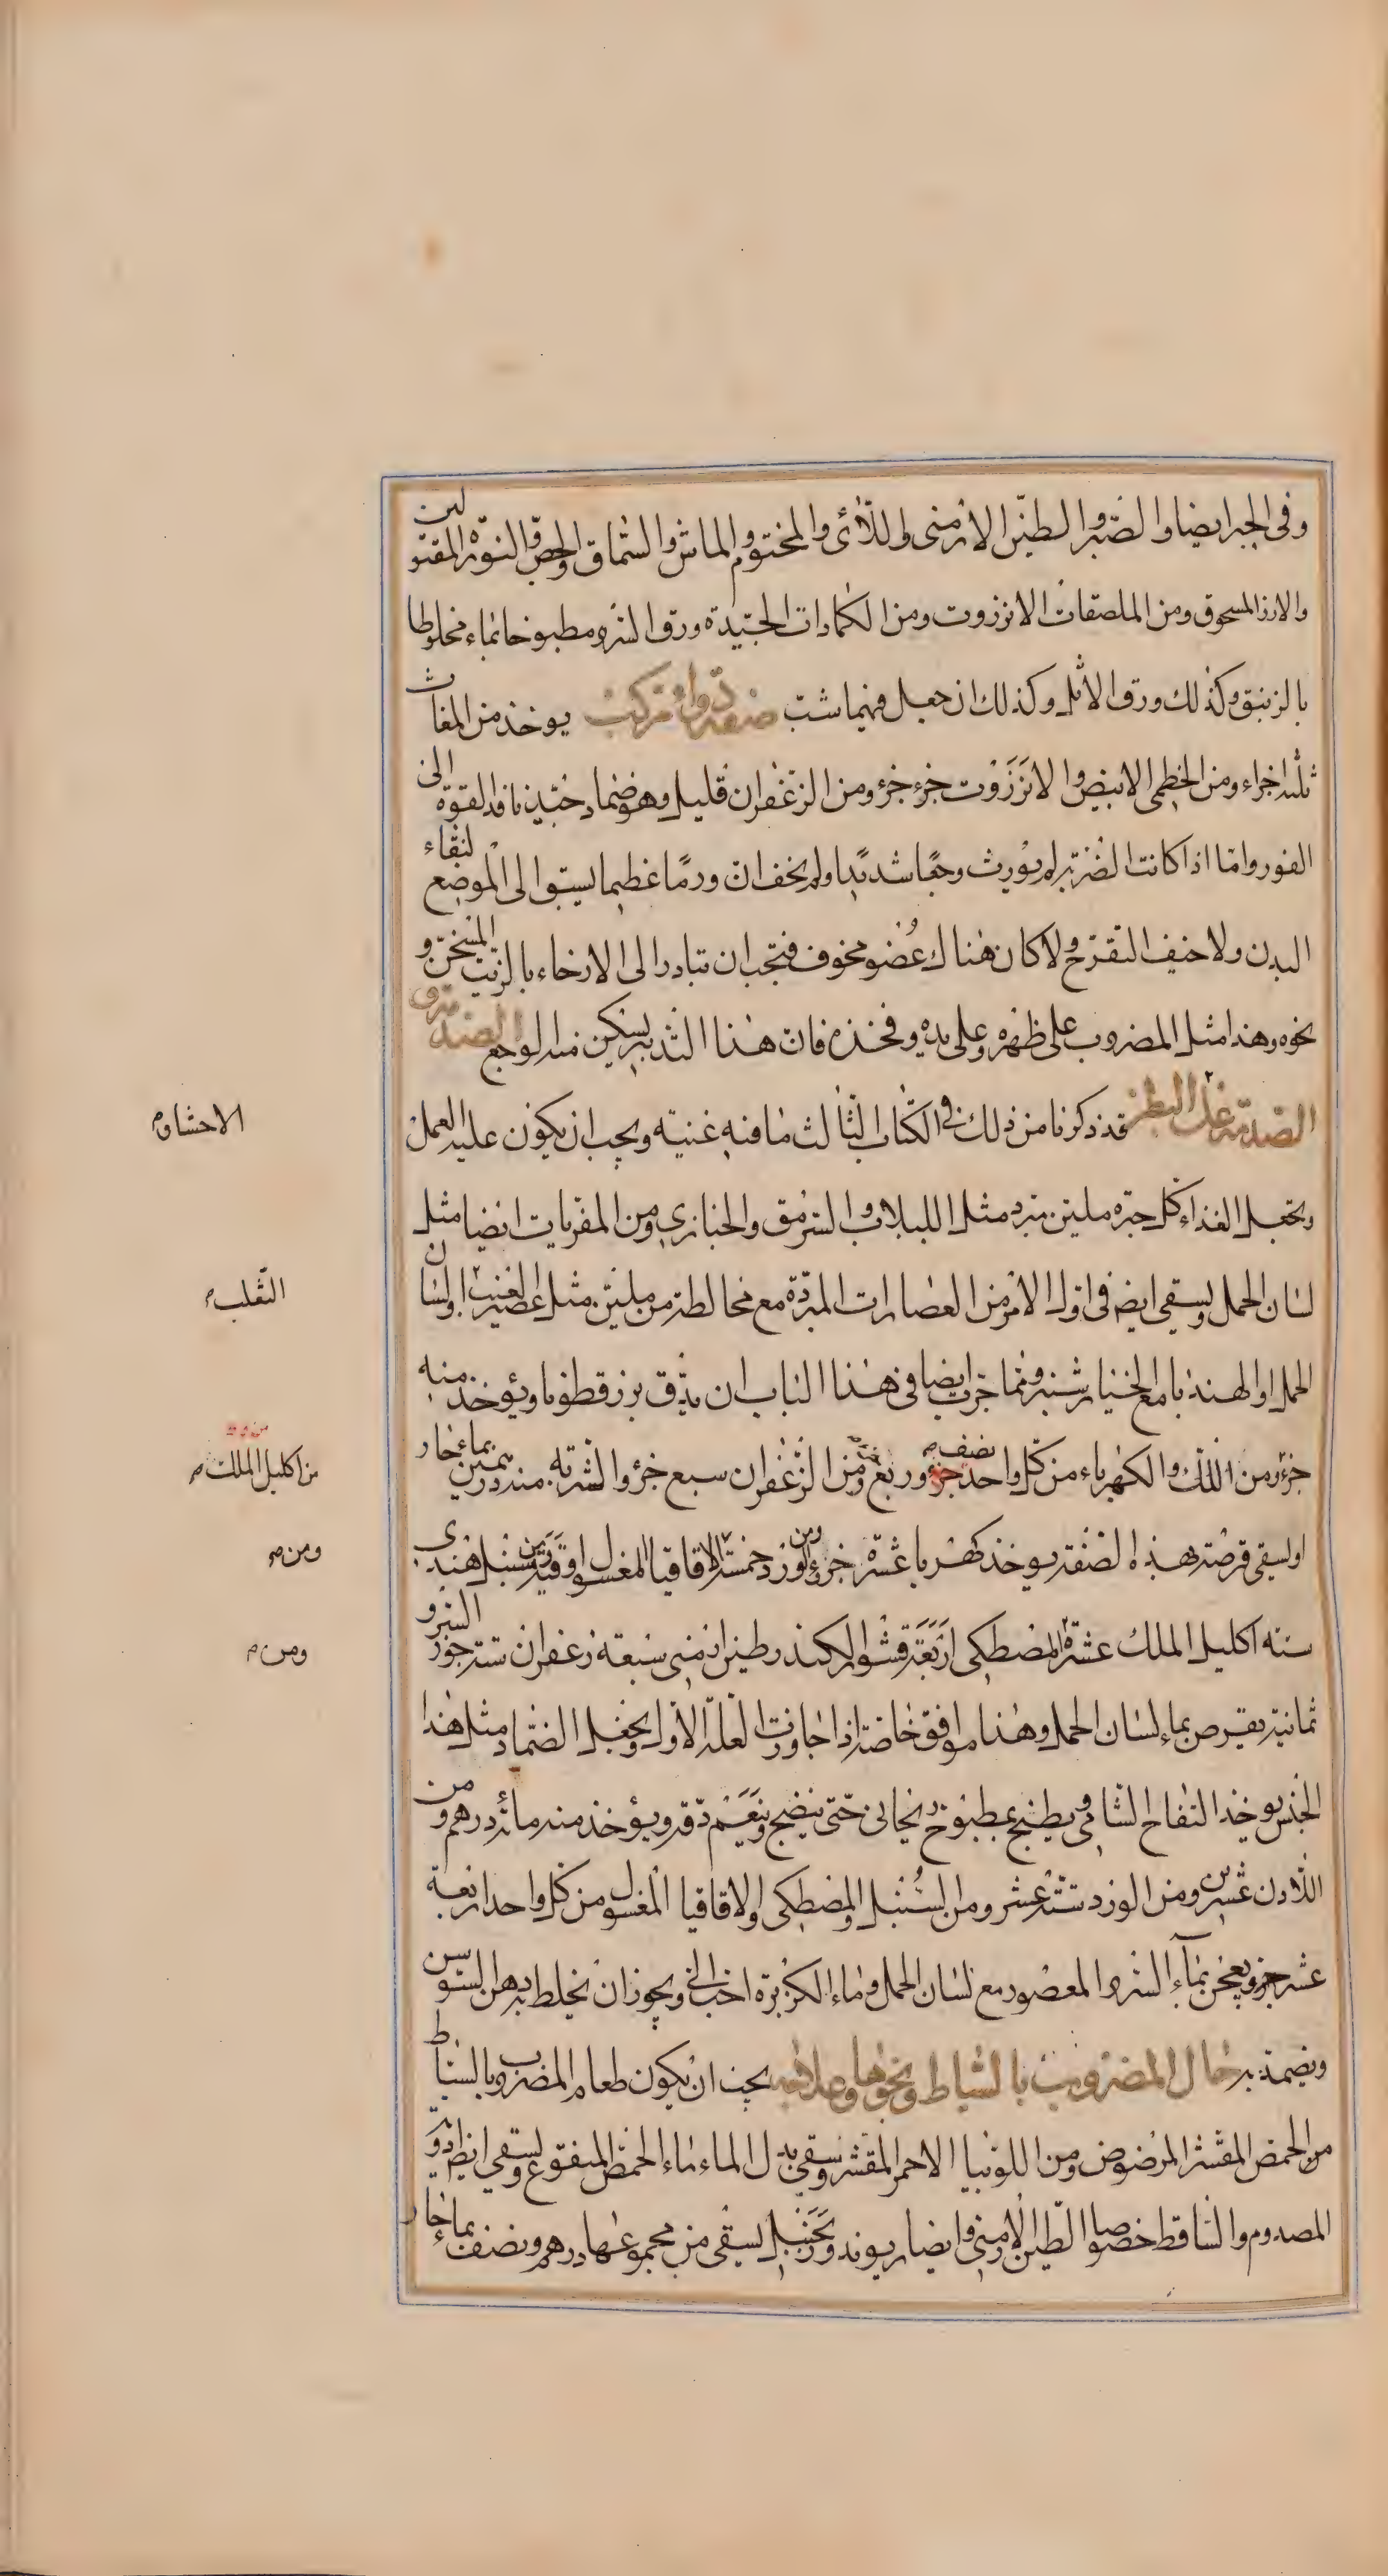 وفى الجبر ايضا والصبر والطين الارمنى واللآئى والمختوم والماش والسماق والجص والنورة المقتولين
والارز المسحوق ومن الملصقات الانزروت ومن الكمادات الجيّدة ورق السرو مطبوخا بماء مخلوطا
بالزنبق وكذلك ورق الاثل وكذلك ان جعل فيهما شب صفة دواء مركب يوخذ من المغاث
ثلثه اجزاء ومن الخطمى الابيض والانزروت جزء جزء ومن الزعفران قليل وهو ضماد جيّد نافذ القوة الى
الغور واما اذا كانت الضربة لم يورث وجعًا شديدًا ولم يخف ان ورمًا عظيما يستو الى الموضع لنقاء
البدن ولا خيف التقرح ولا كان هناك عُضو مخوف فيجب ان تبادر الى الارخاء بالزيت المسخن و
نحوه وهذا مثل المضروب على ظهره وعلى يده وفخذه فان هذا التدبير يسكن منه الوجع الصدمة و
الصدمة على البطن قد ذكرنا من ذلك فى الكتاب الثالث ما فيه غنية ويجب ان يكون عليه العمل
ويجعل الغذاء كل جبره ملين مبرد مثل اللبلاب والسرمق والخبازى ومن المغريات ايضا مثل
لسان الحمل ويسقى ايضا فى اول الامر من العصارات المبردة مع مخالطة من ملين مثل عصير العنب او لسان
الحمل او الهندبا مع الخيار شنبر ومما جرب ايضا فى هذا الباب ان يدق بزر قطونا ويؤخذ منه
جزء ومن اللك والكهرباء من كل واحد نصف جزء وربع ومن الزعفران سبع جزء والشربة منه درهمين بماء حار
او يسقى قرصة بهذه الصفة يوخذ كهربا عشرة جزء ومن الورد خمسة الاقاقيا المغسول اوقيتين سنبل هندى
ستة اكليل الملك عشرة المصطكى اربعة قشور الكندر وطين ارمنى سبعة زعفران ستة جوز السرو
ثمانية يقرص بماء لسان الحمل وهذا موافق خاصة اذا جاوزت العلة الاول ويجعل الضماد مثل هذا
الجنس يوخذ التفاح الشامى ويطبخ بمطبوخ ريحانى حتى ينضج وينعم دقه ويؤخذ منه مائة درهم ومن
اللادن عشرين ومن الورد ستة عشر ومن السنبل والمصطكى والاقاقيا المغسول من كل واحد اربعة
عشر جزء ويعجن بمآء السرو المعصور مع لسان الحمل وماء الكزبرة ويجوز ان يخلط به دهن السوسن
ويضمد به حال المضروب بالسياط ونحوها وعلاجه يجب ان يكون طعام المضروب بالسياط
من الحمص المقشر المرضوض ومن اللوبيا الاحمر المقشر ويسقى بدل الماء ماء الحمص المنقوع ويسقى ايضا ادوية
المصدوم والساقط خصوصا الطين الارمنى وايضا ريوند وزنجبيل يسقى من مجموعها درهم ونصف بماء حار
الاحشاء
الثعلب
من اكليل الملك
ومن
ومن